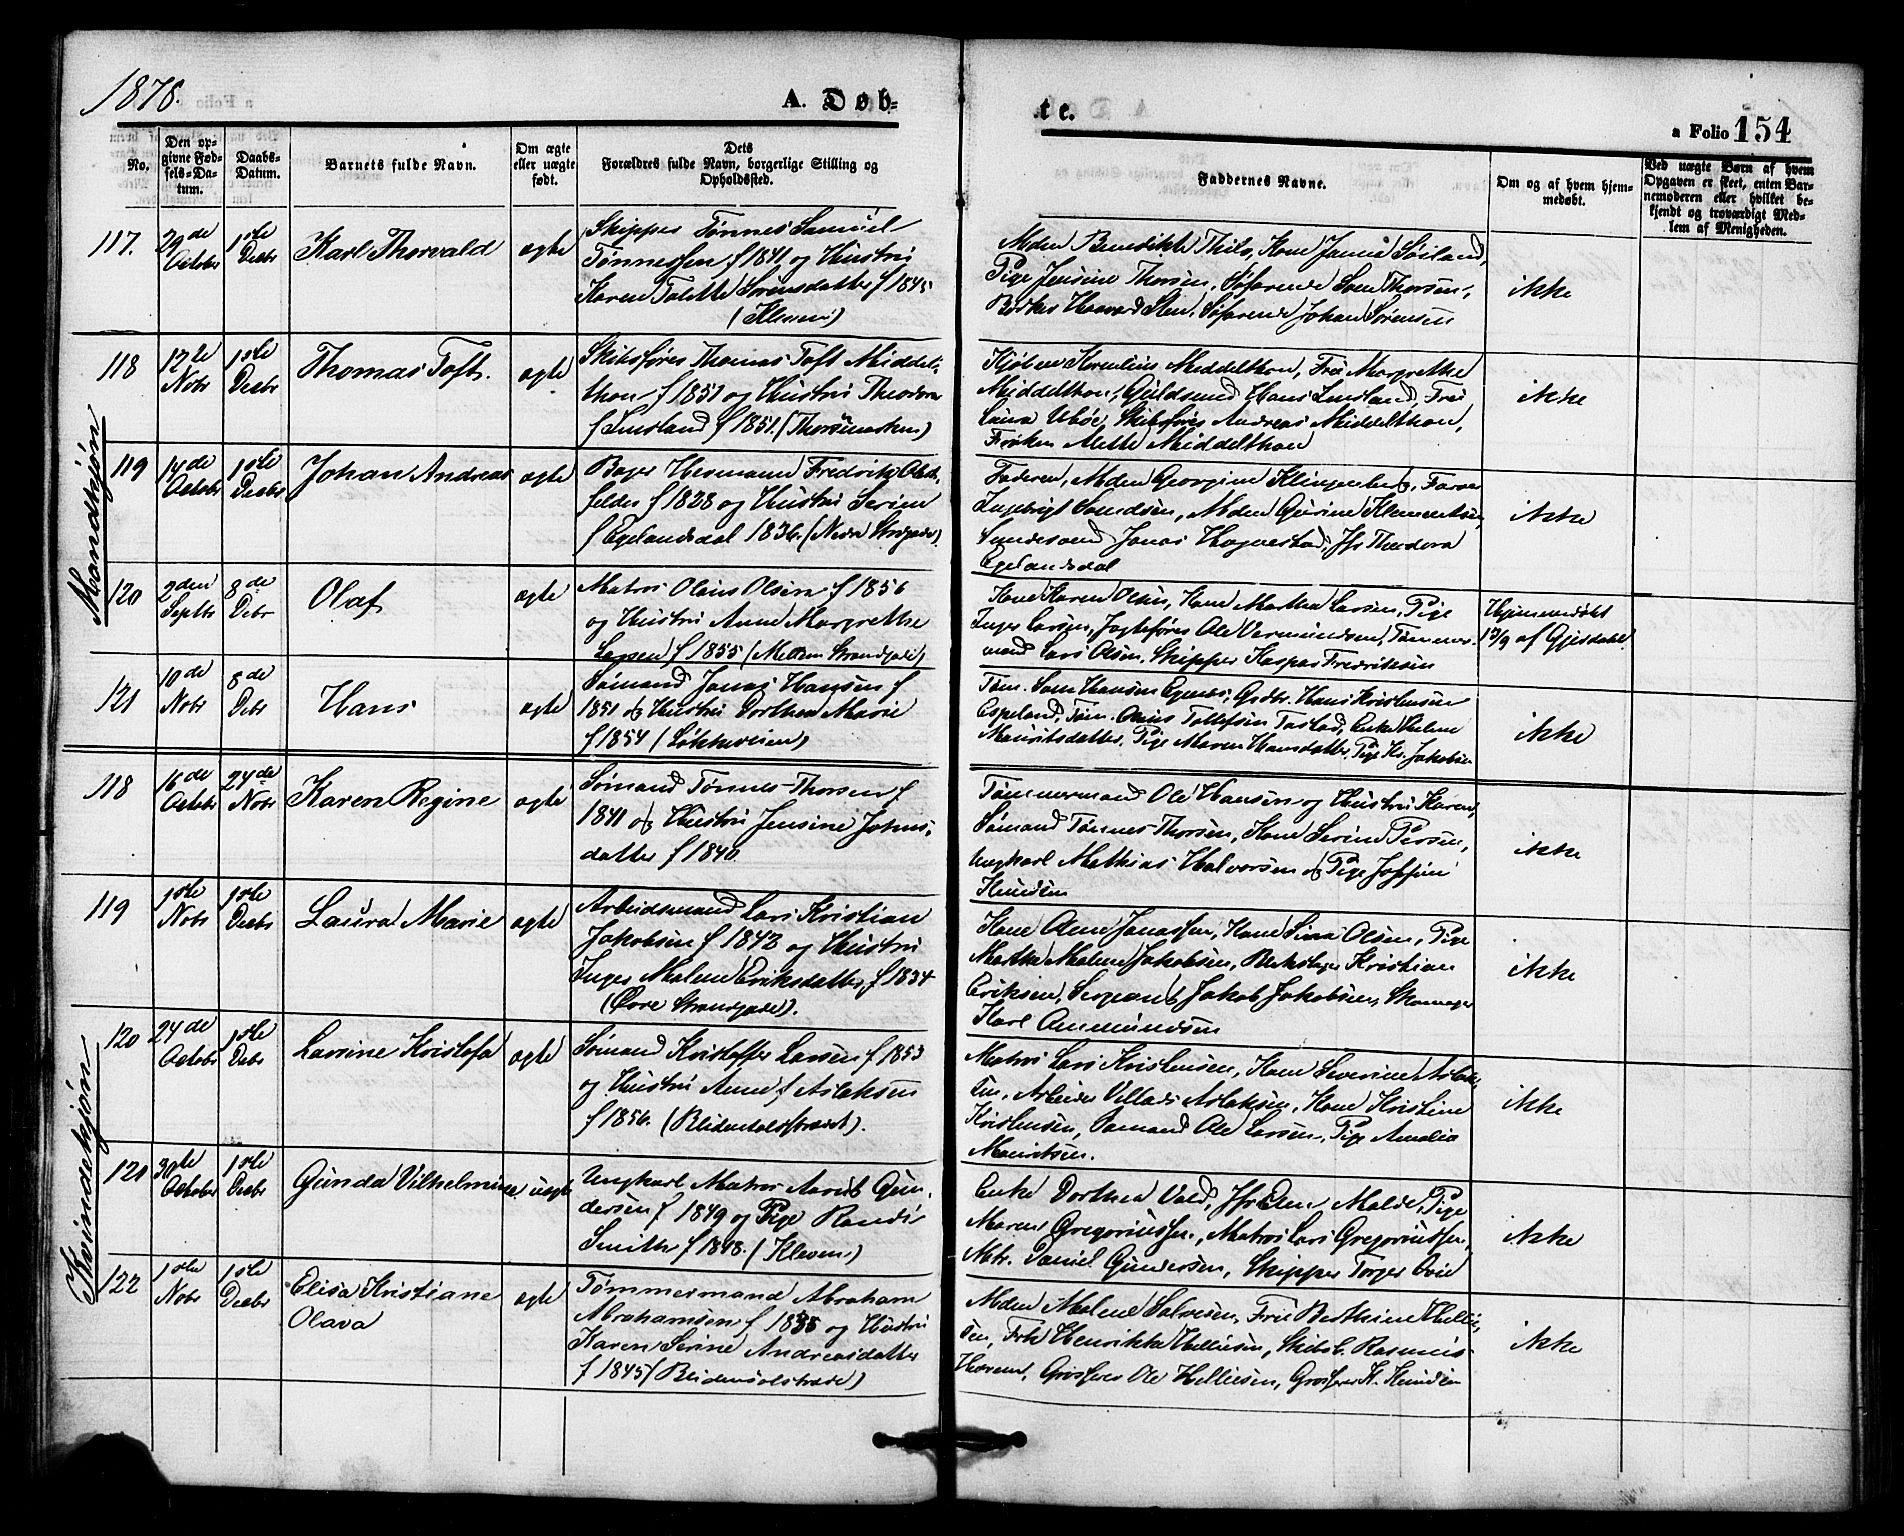 1878.
A. Døb-
te.
a Folio 154
No.
Den op-
givne Fød-
sels-Da-
tum.
Daabs-
Datum.
Barnets fulde Navn.
Om ægte
eller uægte
født.
Dets
Forældres fulde Navn, borgerlige Stilling og
Opholdssted.
Faddernes Navne.
Om og af hvem hjem-
medøbt.
Ved uægte Børn af hvem
Opgaven er skeet, enten Bar-
nemoderen eller hvilket be-
kjendt og troværdigt Med-
lem af Menigheden.
Mandkjøn
117.
29de
Octobr
1ste
Decbr
Karl Thorvald
ægte
Skipper Tønnes Samuel
Tønnessen f 1841 og Hustru
Karen Talette Sørensdatter f 1845
(Kleven)
Mdm Benedikte Thilo, Kone Janna Søiland,
Pige Jensine Thorsen, Søfarende Sven Thorsen,
Bødker Haavard Sten, Søfarende Johan Sørensen
ikke
118
12te
Nobr
1ste
Decbr
Thomas Toft.
ægte
Skibsfører Thomas Toft Middel-
thon f 1851 og Hustru Theodora
f Imsland f 1851. (Thorsmarken)
Kjøbm Kornelius Middelthon, Fru Margrethe
Middelthon, Guldsmed Hans Imsland, Fru
Laura Ubøe, Skibsfører Andreas Middelthon,
Frøken Mette Middelthon
ikke
119
14de
Octobr
1ste
Decbr
Johan Andreas
ægte
Bager Hermann Fredrik
felder f 1828 og Hustru Serine
f Egelandsdal 1836. (Nedre Strandgade)
Faderen, Mdm Georgine Klingenberg, Farver
Ingebrigt Svendsen, Mdm Gurine Klementsen,
Jonas Hognestad, Jfr Theodora
Egelandsdal
ikke
120
2den
Septbr
8de
Debr
Olaf
ægte
Matros Olaus Olsen f 1856
og Hustru Anne Margrethe
Larsen f 1855 (Mellem Strandgade)
Kone Karen Olsen, Kone Martha Larsen, Pige
Inger Larsen, Jagtefører Ole Vermundsen, Tømmer-
mand Lars Olsen, Skipper Kasper Fredriksen
Hjemmedøbt
13/9 af Gjesdahl
121
10de
Nobr
8de
Debr
Hans
ægte
Sømand Jonas Hansen f
1851 og Hustru Dorthea Marie
f 1854 (Løkkeveien)
Tøm. Sven Hansen Egenes, Gdbr. Hans Kristensen
Espeland, Tøm. Tollefsen Tastad, Enke Helene
Mauritsdatter, Pige Maren Hansdatter, Pige Kr. Jakobsen
ikke
Kvindekjøn
118
16de
Octobr
24de
Nobr
Karen Regine
ægte
Sømand Tønnes Thorsen f
1841 og Hustru Jensine Johns-
datter f 1840.
Tømmermand Ole Hansen og Hustru Karen,
Sømand Tønnes Thorsen, Kone Serine Persen,
Ungkarl Mathias Halvorsen og Pige Josefine
Knudsen
ikke
119
1ste
Nobr
1ste
Decbr
Laura Marie
ægte
Arbeidsmand Lars Kristian
Jakobsen f 1842 og Hustru
Inger Malene Eriksdatter f 1834
(Øvre Strandgade).
Kone Anne Jonassen, Kone Sina Olsen, Pige
Martha Malene Jakobsen, Blikslager Kristian
Eriksen, Sergeant Jakob Jakobsen, Skomager
Karl Ommundsen
ikke
120
24de
Octobr
1ste
Debr
Larsine Kristofa
ægte
Sømand Kristoffer Larsen f 1853
og Hustru Anne f Aslaksen
f 1856. (Blidensolstræde).
Matros Lars Kristensen, Kone Severine Aslak-
sen, Arbeider Villads Aslaksen, Kone Kristine
Kristensen, Sømand Ole Larsen, Pige Amalia
Mauritsen.
ikke
121
30te
Octobr
1ste
Decbr
Gunda Vilhelmine
uægte
Ungkarl Matros Aavet Gun-
dersen f 1849 og Pige Randi
Smith f 1848. (Kleven)
Enke Dorthea Vold, Jfr Malde, Pige
Maren Gregoriussen, Matros Lars Gregoriussen,
Mtr. Daniel Gundersen, Skipper Torger
ikke
122
1ste
Nobr
1ste
Decbr
Elisa Kristiane
Olava
ægte
Tømmermand Abraham
Abrahamsen f 1835 og Hustru
Karen Serine Andreasdatter
f 1845 (Blidensolstræde)
Mdm Malene Salvesen, Fru Berthine Helli-
sen, Frk Henrikke Helliesen, Skibsb. Rasmus
Haaland, Grosserer Ole Helliesen, Grosserer K. Knudsen
ikke